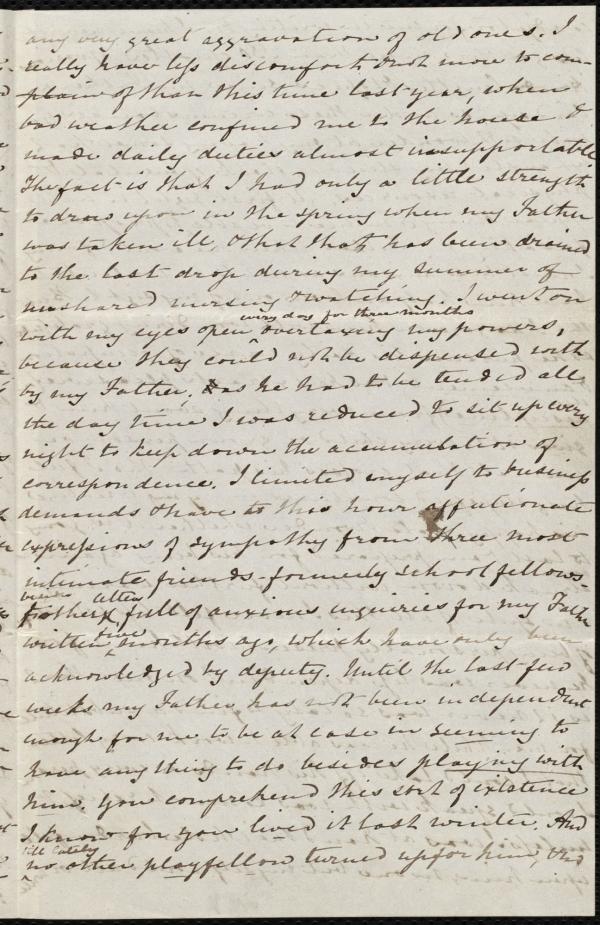 any very great aggravation of old ones. I
really have less discomfort & not more to com-
plain of than this time last year, when
bad weather confined me to the house &
made daily duties almost insupportable
The fact is that I had only a little strength
to draw upon in the spring when my Father
was taken ill, & that that, has been drained
to the last drop during my summer of
unshared nursing & watching. I went on
every day for three months
with my eyes open overtaxing my powers,
because they could not be dispensed with
by my Father. & as he had to be tended all
the day time I was reduced to sit up every
night to keep down the accumulation of
correspondence. I limited myself to business
demands & have to this hour affectionate
expressions of sympathy from three most
intimate friends - formerly school fellows -
letters
& others full of anxious inquiries for my Father
five
written months ago, which have only been
acknowledged by deputy. Until the last few
weeks my Father has not been independent
enough for me to be at ease in seeming to
have anything to do besides playing with
him. You comprehend this sort of existence
I know for you lived it last winter. And
till lately
no other playfellow turned up for him, and